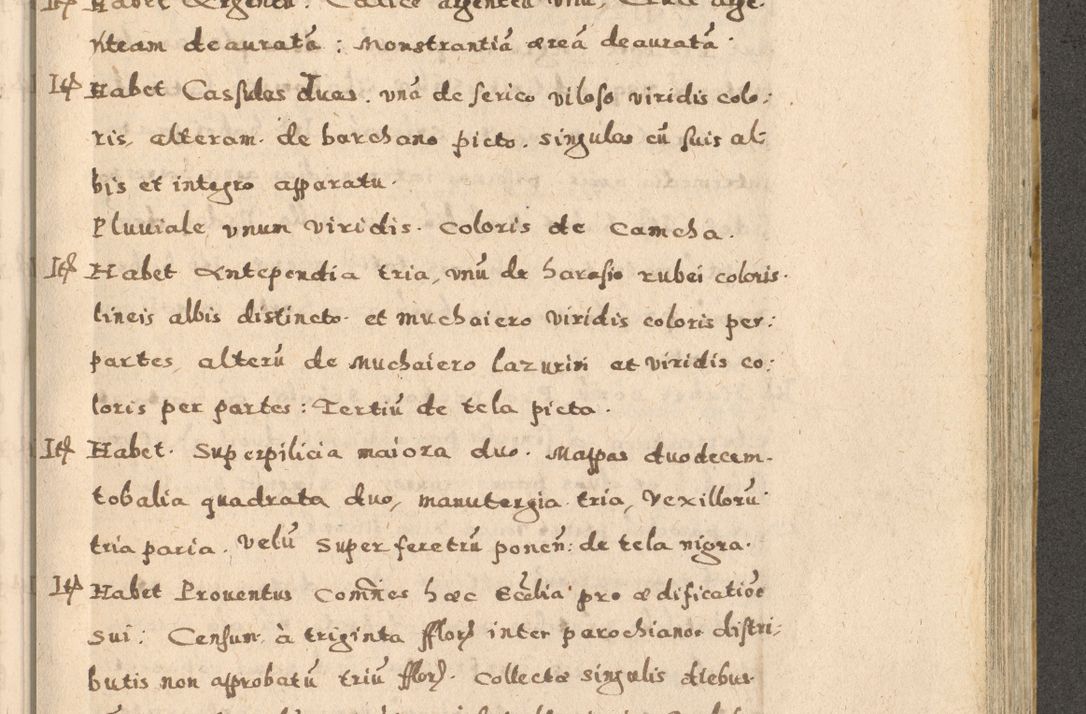 Itē Habet Argentū: Calicē argenteū unū, Crucē arge-
nteam deauratā: Monstrantiā æreā deauratā.
Itē Habet Cassulas duas. unā de serico viloso viridis colo:
ris, alteram de barchano picto. singulas cū suis al-
bis et integro apparatu.
Pluviale unum viridis coloris de Camcha.
Itē Habet Antependia tria, unū de harasio rubei coloris.
lineis albis distincto. et muchaiero viridis coloris per:
partes, alterū de Muchaiero lazurin at viridis co:
loris per partes: Tertiū de tela picta.
Itē Habet. Superpilicia maiora duo. Mappas duodecem.
tobalia quadrata duo, manutergia tria, Vexillorū
tria paria. Velū super feretrū ponen̄: de tela nigra.
Itē Habet Proventus Com̄nes hæc Eccĺia pro ædificatiōe
sui: Censun à triginta fflor̄ inter parochianos distri:
butis non approbatū triū fflor̄. Collectæ singulis diebus